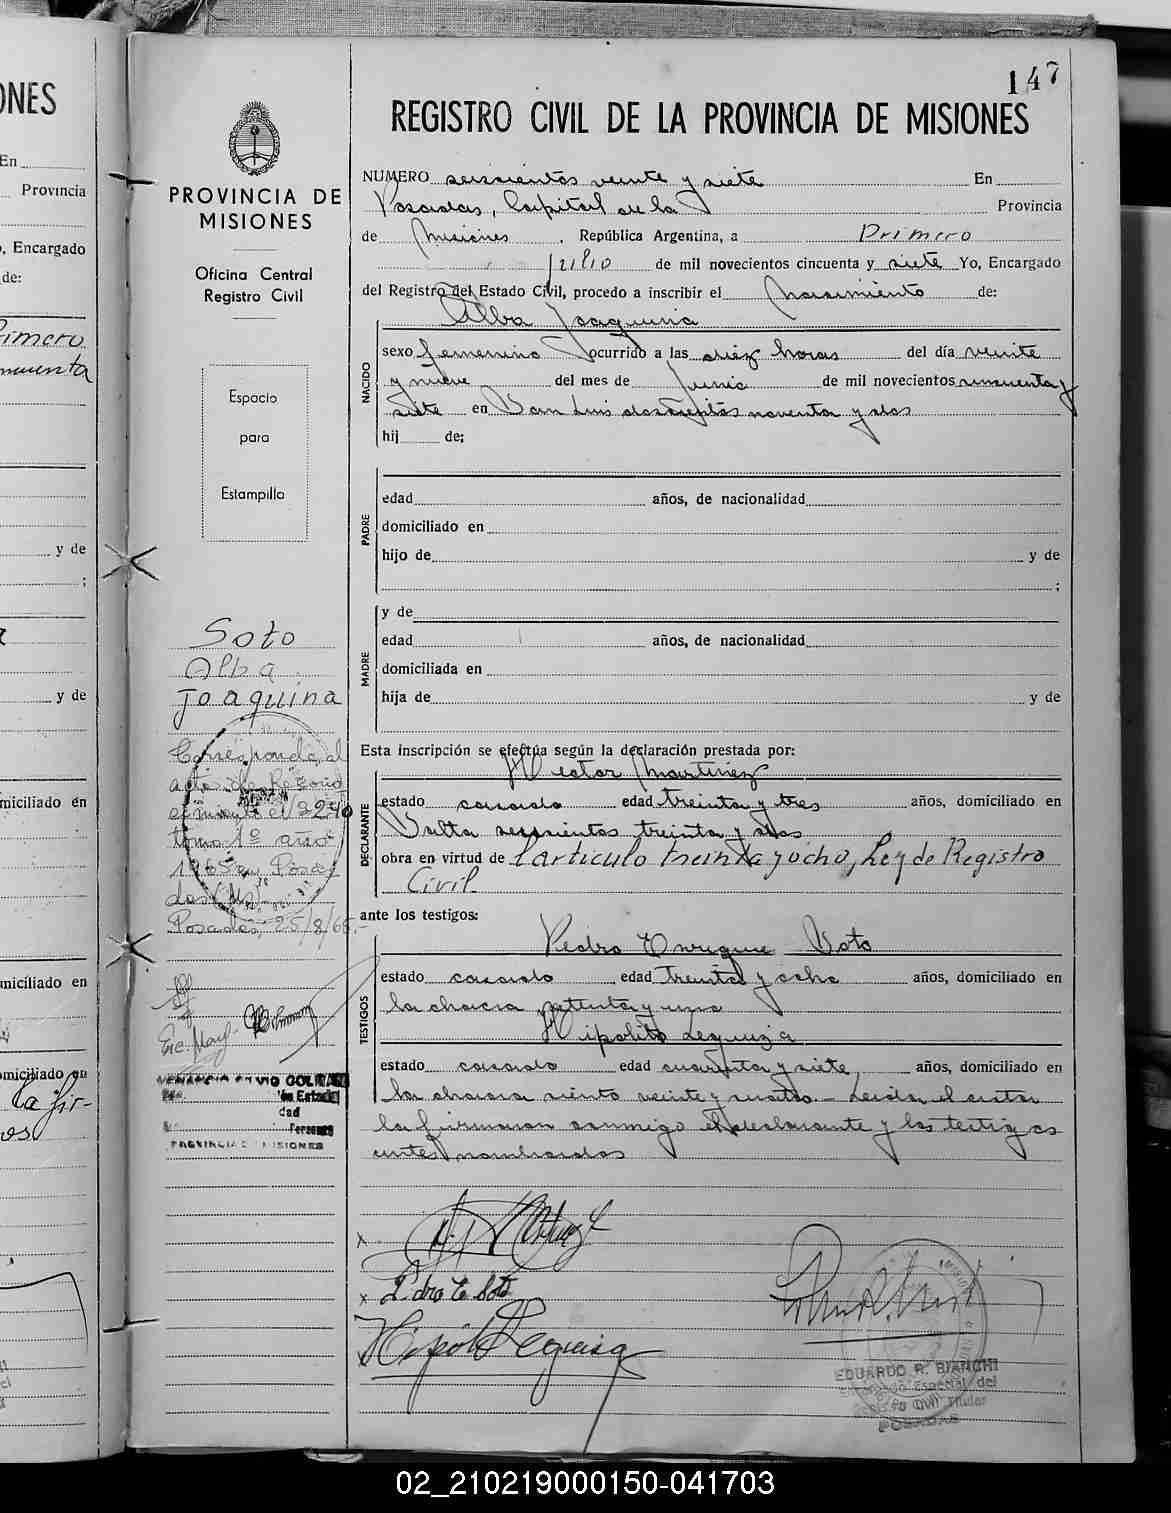 147
ONES
En
Provincia
, Encargado
de:
y de
;
y de
miciliado en
miciliado en
omiciliado en
PROVINCIA DE
MISIONES
Oficina Central
Registro Civil
Espacio
para
Estampilla
Soto
Alba
Joaquina
Corresponde al
acta de
tomo 1º año
1965 en Posa
das
Posadas, 25/8/65.-
PROVINCIA DE MISIONES
REGISTRO CIVIL DE LA PROVINCIA DE MISIONES
NUMERO seiscientos veinte y siete En
Posadas, Capital de la Provincia
de Misiones, República Argentina, a Primero
julio de mil novecientos cincuenta y siete Yo, Encargado
del Registro del Estado Civil, procedo a inscribir el Nacimiento de:
Alba Joaquina
NACIDO
sexo femenino ocurrido a las diez horas del día veinte
y nueve del mes de Junio de mil novecientos cincuenta y
siete en San Luis doscientos noventa y dos
hij de;
PADRE
edad años, de nacionalidad
domiciliado en
hijo de y de
;
MADRE
y de
edad años, de nacionalidad
domiciliada en
hija de y de
Esta inscripción se efectúa según la declaración prestada por:
DECLARANTE
Hector Martinez
estado casado edad treinta y tres años, domiciliado en
Salta seiscientos treinta y dos
obra en virtud de l articulo treinta y ocho, Ley de Registro
Civil
ante los testigos:
TESTIGOS
Pedro Enrique Soto
estado casado edad treinta y ocho años, domiciliado en
la chacra setenta y una
Hipolito Leguiza
estado casado edad cuarenta y siete, años, domiciliado en
la chacra ciento veinte y cuatro.- Leida el acta
la firmaron conmigo el declarante y los testigos
antes nombrados
Pedro E Soto
Hipol Leguiza
EDUARDO R. BIANCHI
Encargado Especial del
Registro Civil Titular
POSADAS
02_210219000150-041703